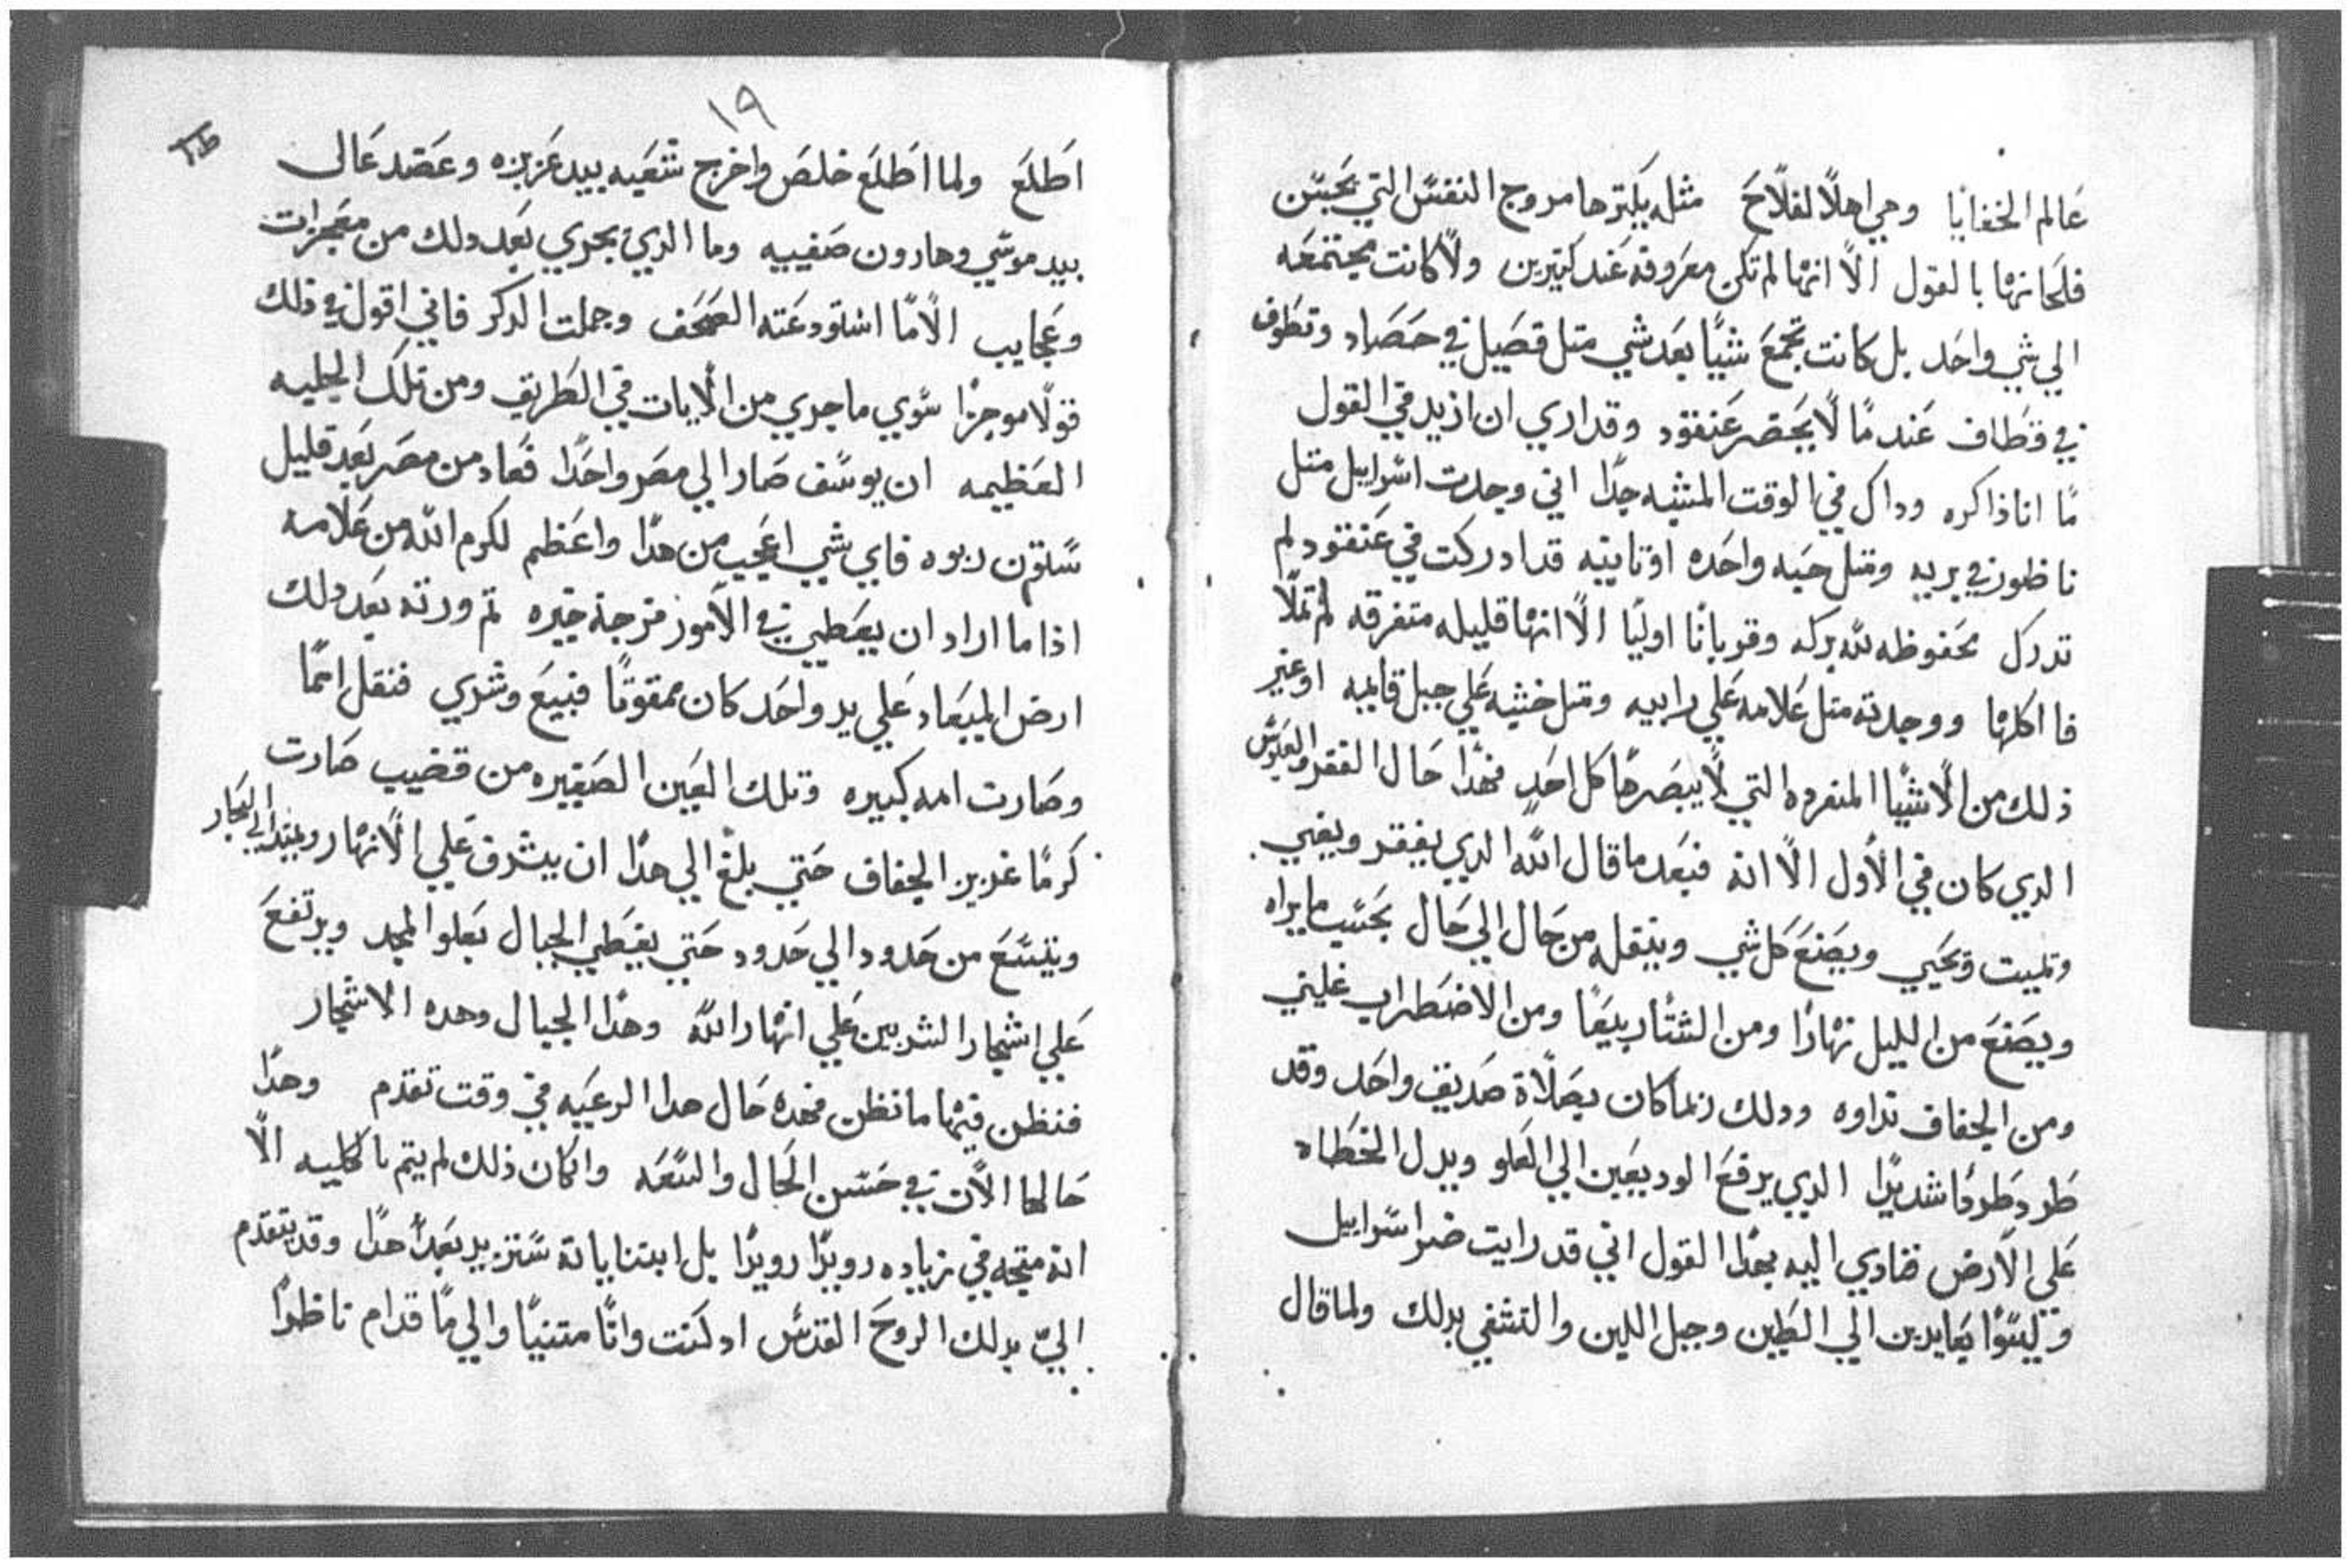 عَالم الخفايا وهي اهلاً لفلاحَ مثله يكترها مروج النفسّ التي يَحبسّن
فلَحانها بالقول الاّ انها لم تكن معَروفه عَند كتيرين ولاّ كانت مجتمعَه
الي شي واحَد بل كانت تجمعَ شيًا بعَد شي متل قصَيل في حصَاد وتطَوف
في قطاف عَندمًا لاّ يحَصَر عَنقود وقد اري ان ازيد في القول
مًا انا ذاكره وداك في الوقت المشبه جدًا اني وجدت اسّراييل متل
ناطور في بريه ومتل حبَه واحَده او تانيه قد ادركت في عَنقود لم
تدركَ محَفوظه لله بركه وقوبانًا اوليًا الاّ انها قليله متفرقه لم تملاّ
فا اكلها ووجدته متل عَلامه عَلي رابيه ومتل خشبه عَلي جبل قايمه او غير
ذلك من الاّشيا المنفرده التي لاّ يبصَرهَا كل احَد فهدا حَال الفقر والعبوسّ
الدي كان في الاوّل الاّ انه فبعَد ما قال الله الدي يفقر ويغني
ويميت ويحَيي ويصَنعَ كَل شي وينقله من حَال الي حَال بحَسّب ما يراه
ويصَنعَ من الليل نهارًا ومن الشتا ربيعًا ومن الاضطراب غليني
ومن الجفاف نداوه ودلك ربما كان بصَلاّة صَديق واحَد وقد
طَرد طَردًا شديدًا الدي يرفعَ الوديعَين الي العَلو ويدل الخطَاه
عَلي الاّرض فنادي اليه بهدا القول اني قد رايت ضر اسّراييل
وليسّوا يعَايدين الي الطَين وجبل اللبن والتشفي بدلك ولما قال
١٩
اطَلعَ ولما اطَلعَ خلصَ واخرج شعَبه بيد عَزيزه وعَضد عَالي
بيد موسّي وهارون صَفييه وما الدي يجري بعَد دلك من معَجزات
وعَجايب الاّ مًا استودعَته الصَحَف وجملت الدكر فاني اقول في ذلك
قولاً موجزًا سّوي ما جري من الاّيات في الطَريق ومن تلكَ الجلبه
العَظيمه ان يوسّف صَار الي مصَر واحَدًا فعَاد من مصَر بعَد قليل
سّتون ربوه فاي شي اعَجب من هدا واعَظم لكرم الله من عَلامه
اذا ما اراد ان يعَطي في الاّمور فرجة خيره تم ورته بعَد دلك
ارض الميعَاد عَلي يد واحَد كان ممقوتًا فبيعَ وشري فنقل امًا
وصَارت امه كبيره وتلك العَين الصَغيره من قضيب صَارت
كَرمًا غزير الجفاف حَتي بلغ الي هدا ان يشرف عَلي الاّنهار ويمتد الي البحَار
ويتسّعَ من حَدود الي حَدود حَتي يغَطي الجبال بعَلو المجد ويرتفعَ
عَلي اشجار الشربين عَلي انهار الله وهدا الجبال وهده الاشجار
فنظن فيها ما نظن فهده حَال هدا الرعَيه في وقت تقدم وهدا
حَالها الاّن في حَسّن الحَال والسّعَه وان كان ذلك لم يتم بالكليه الاّ
انه متجه في زياده رويدًا رويدًا بل ابتنا يانه سّتزيد بعَد هدا وقد يتقدم
الي بدلك الروحَ القدسّ اد كنت وانًا متنبيًا والي مًا قدام ناظرًا